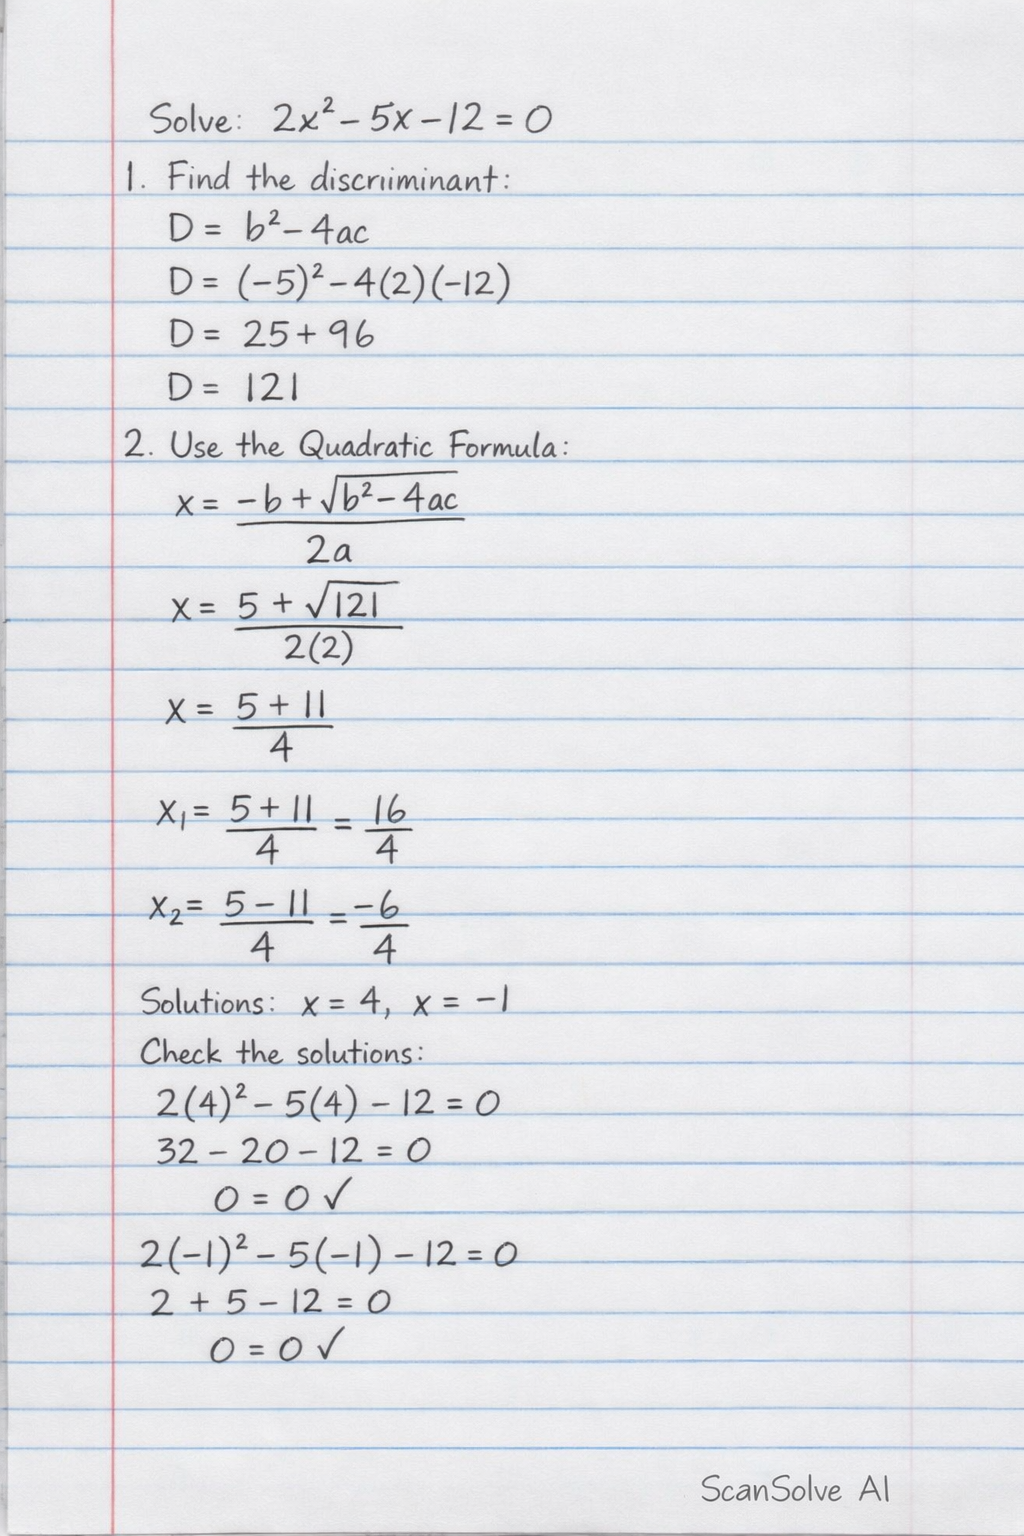 Solve: 2x² − 5x − 12 = 0
1. Find the discriiminant:
D = b² − 4ac
D = (−5)² − 4(2)(−12)
D = 25 + 96
D = 121
2. Use the Quadratic Formula:
x = (−b + √(b² − 4ac)) / 2a
x = (5 + √121) / 2(2)
x = (5 + 11) / 4
x₁ = (5 + 11) / 4 = 16 / 4
x₂ = (5 − 11) / 4 = −6 / 4
Solutions: x = 4, x = −1
Check the solutions:
2(4)² − 5(4) − 12 = 0
32 − 20 − 12 = 0
0 = 0 ✓
2(−1)² − 5(−1) − 12 = 0
2 + 5 − 12 = 0
0 = 0 ✓
ScanSolve AI